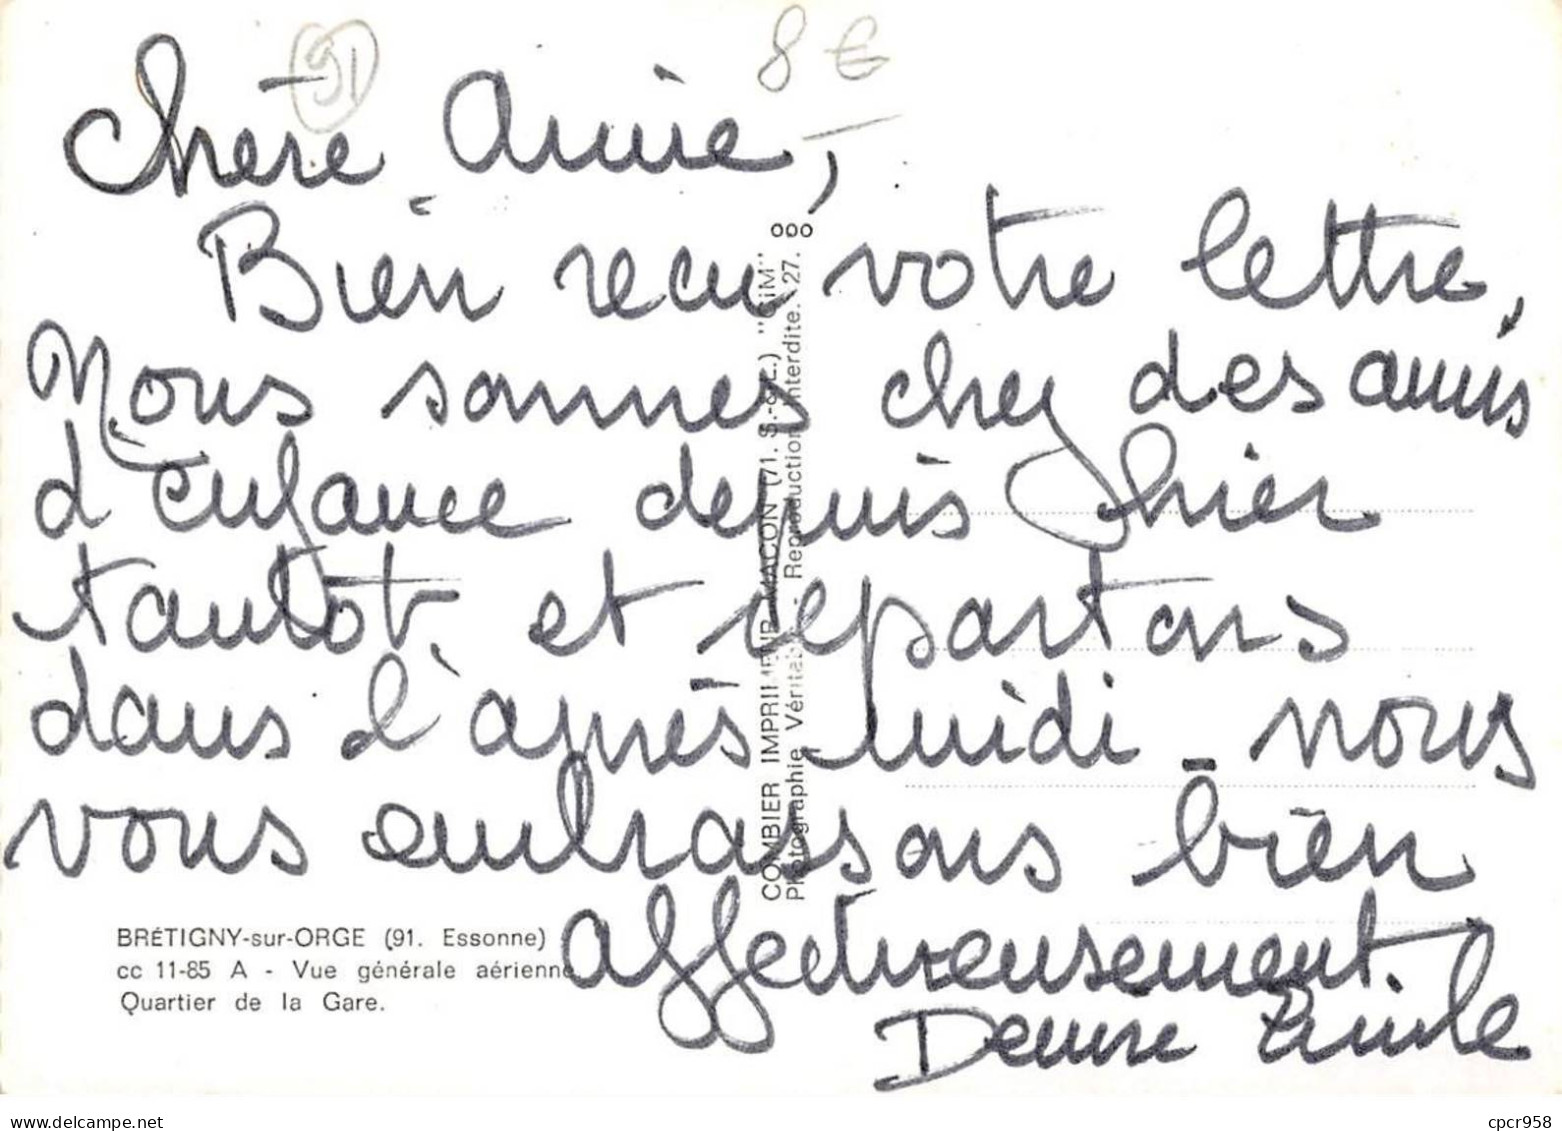 91
8 €
Chère Annie,
Bien reçu votre lettre,
Nous sommes chez des amis
d'enfance depuis hier
tantôt, et repartons
dans l'après midi - nous
vous embrassons bien
affectueusement.
Denise Emile
BRÉTIGNY-sur-ORGE (91. Essonne)
cc 11-85 A - Vue générale aérienne
Quartier de la Gare.
COMBIER IMPRIMEUR MACON (71. S.-&-L.) "CIM"
Photographie Véritable - Reproduction Interdite. 27.
cpcr958